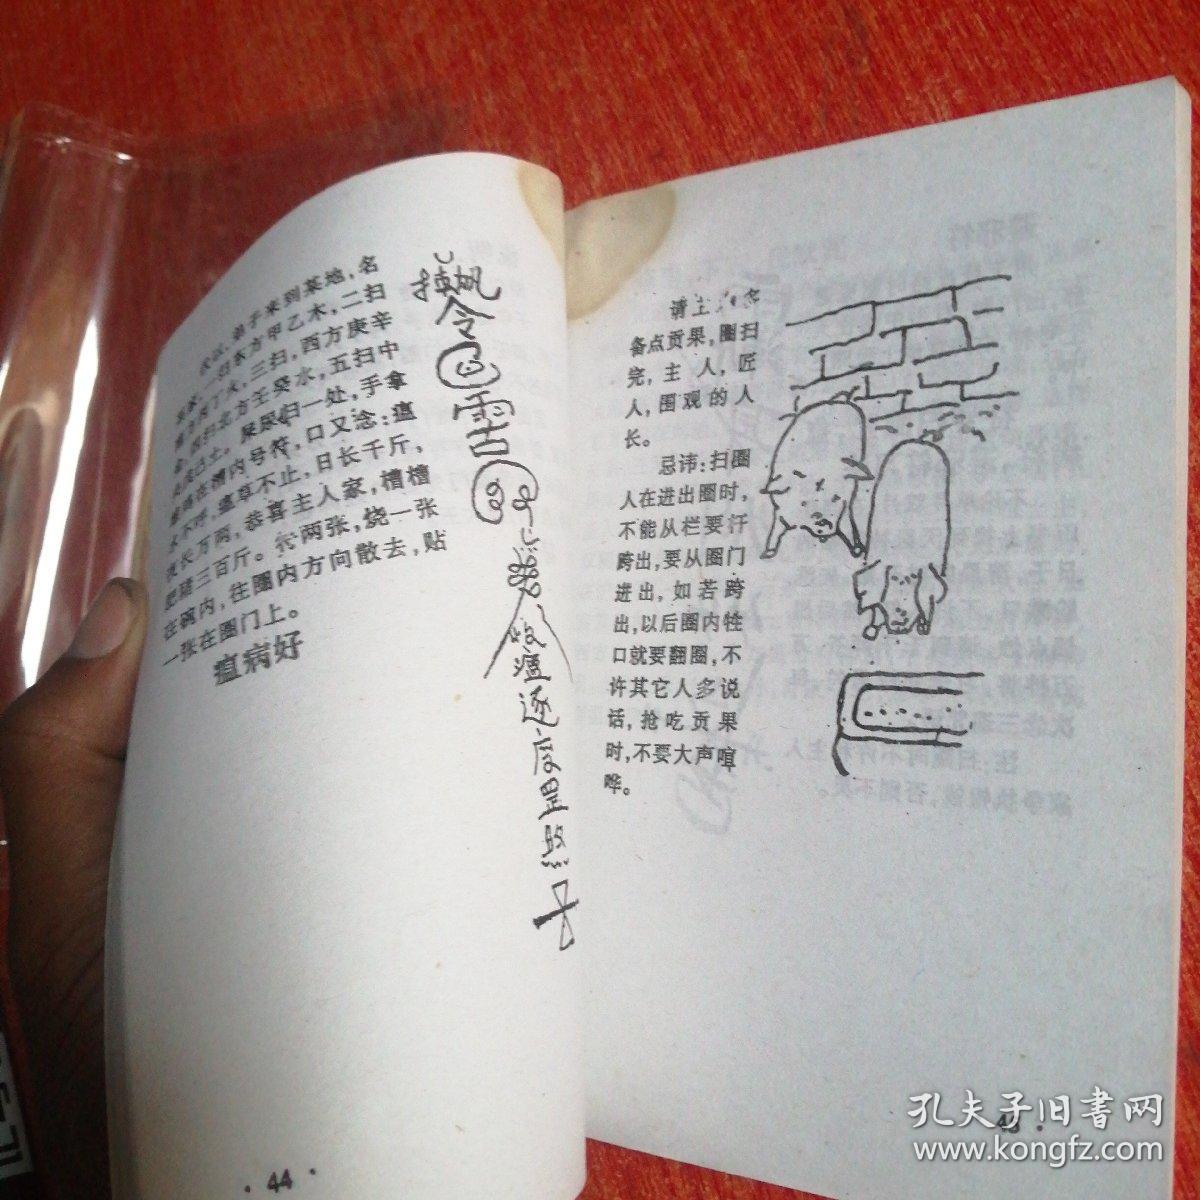 弟子来到某地,名
一扫东方甲乙木,二扫
南方丙丁火,三扫,西方庚辛
四扫北方壬癸水,五扫中
戊己土。屎尿扫一处,手拿
在槽内号符,口又念:瘟
不止,日长千斤,
夜长万两,恭喜主人家,槽槽
肥猪三百斤。 两张,烧一张
在碗内,往圈内方向散去,贴
一张在圈门上。
瘟病好
令
雷
瘟
逐
罡
煞
· 44 ·
请主
备点贡果,圈扫
完,主人,匠
人,围观的人
长。
忌讳:扫圈
人在进出圈时,
不能从栏要汗
跨出,要从圈门
进出,如若跨
出,以后圈内牲
口就要翻圈,不
许其它人多说
话,抢吃贡果
时,不要大声喧
哗。
孔夫子旧书网
www.kongfz.com